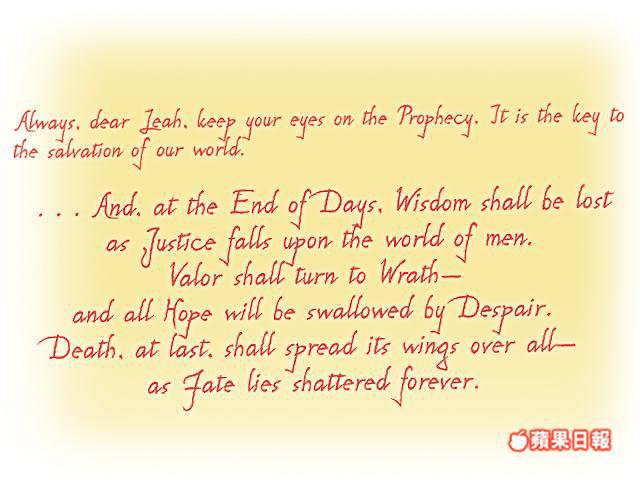 Always, dear Leah, keep your eyes on the Prophecy. It is the key to
the salvation of our world.
. . . And, at the End of Days, Wisdom shall be lost
as Justice falls upon the world of men.
Valor shall turn to Wrath—
and all Hope will be swallowed by Despair.
Death, at last, shall spread its wings over all—
as Fate lies shattered forever.
蘋果日報